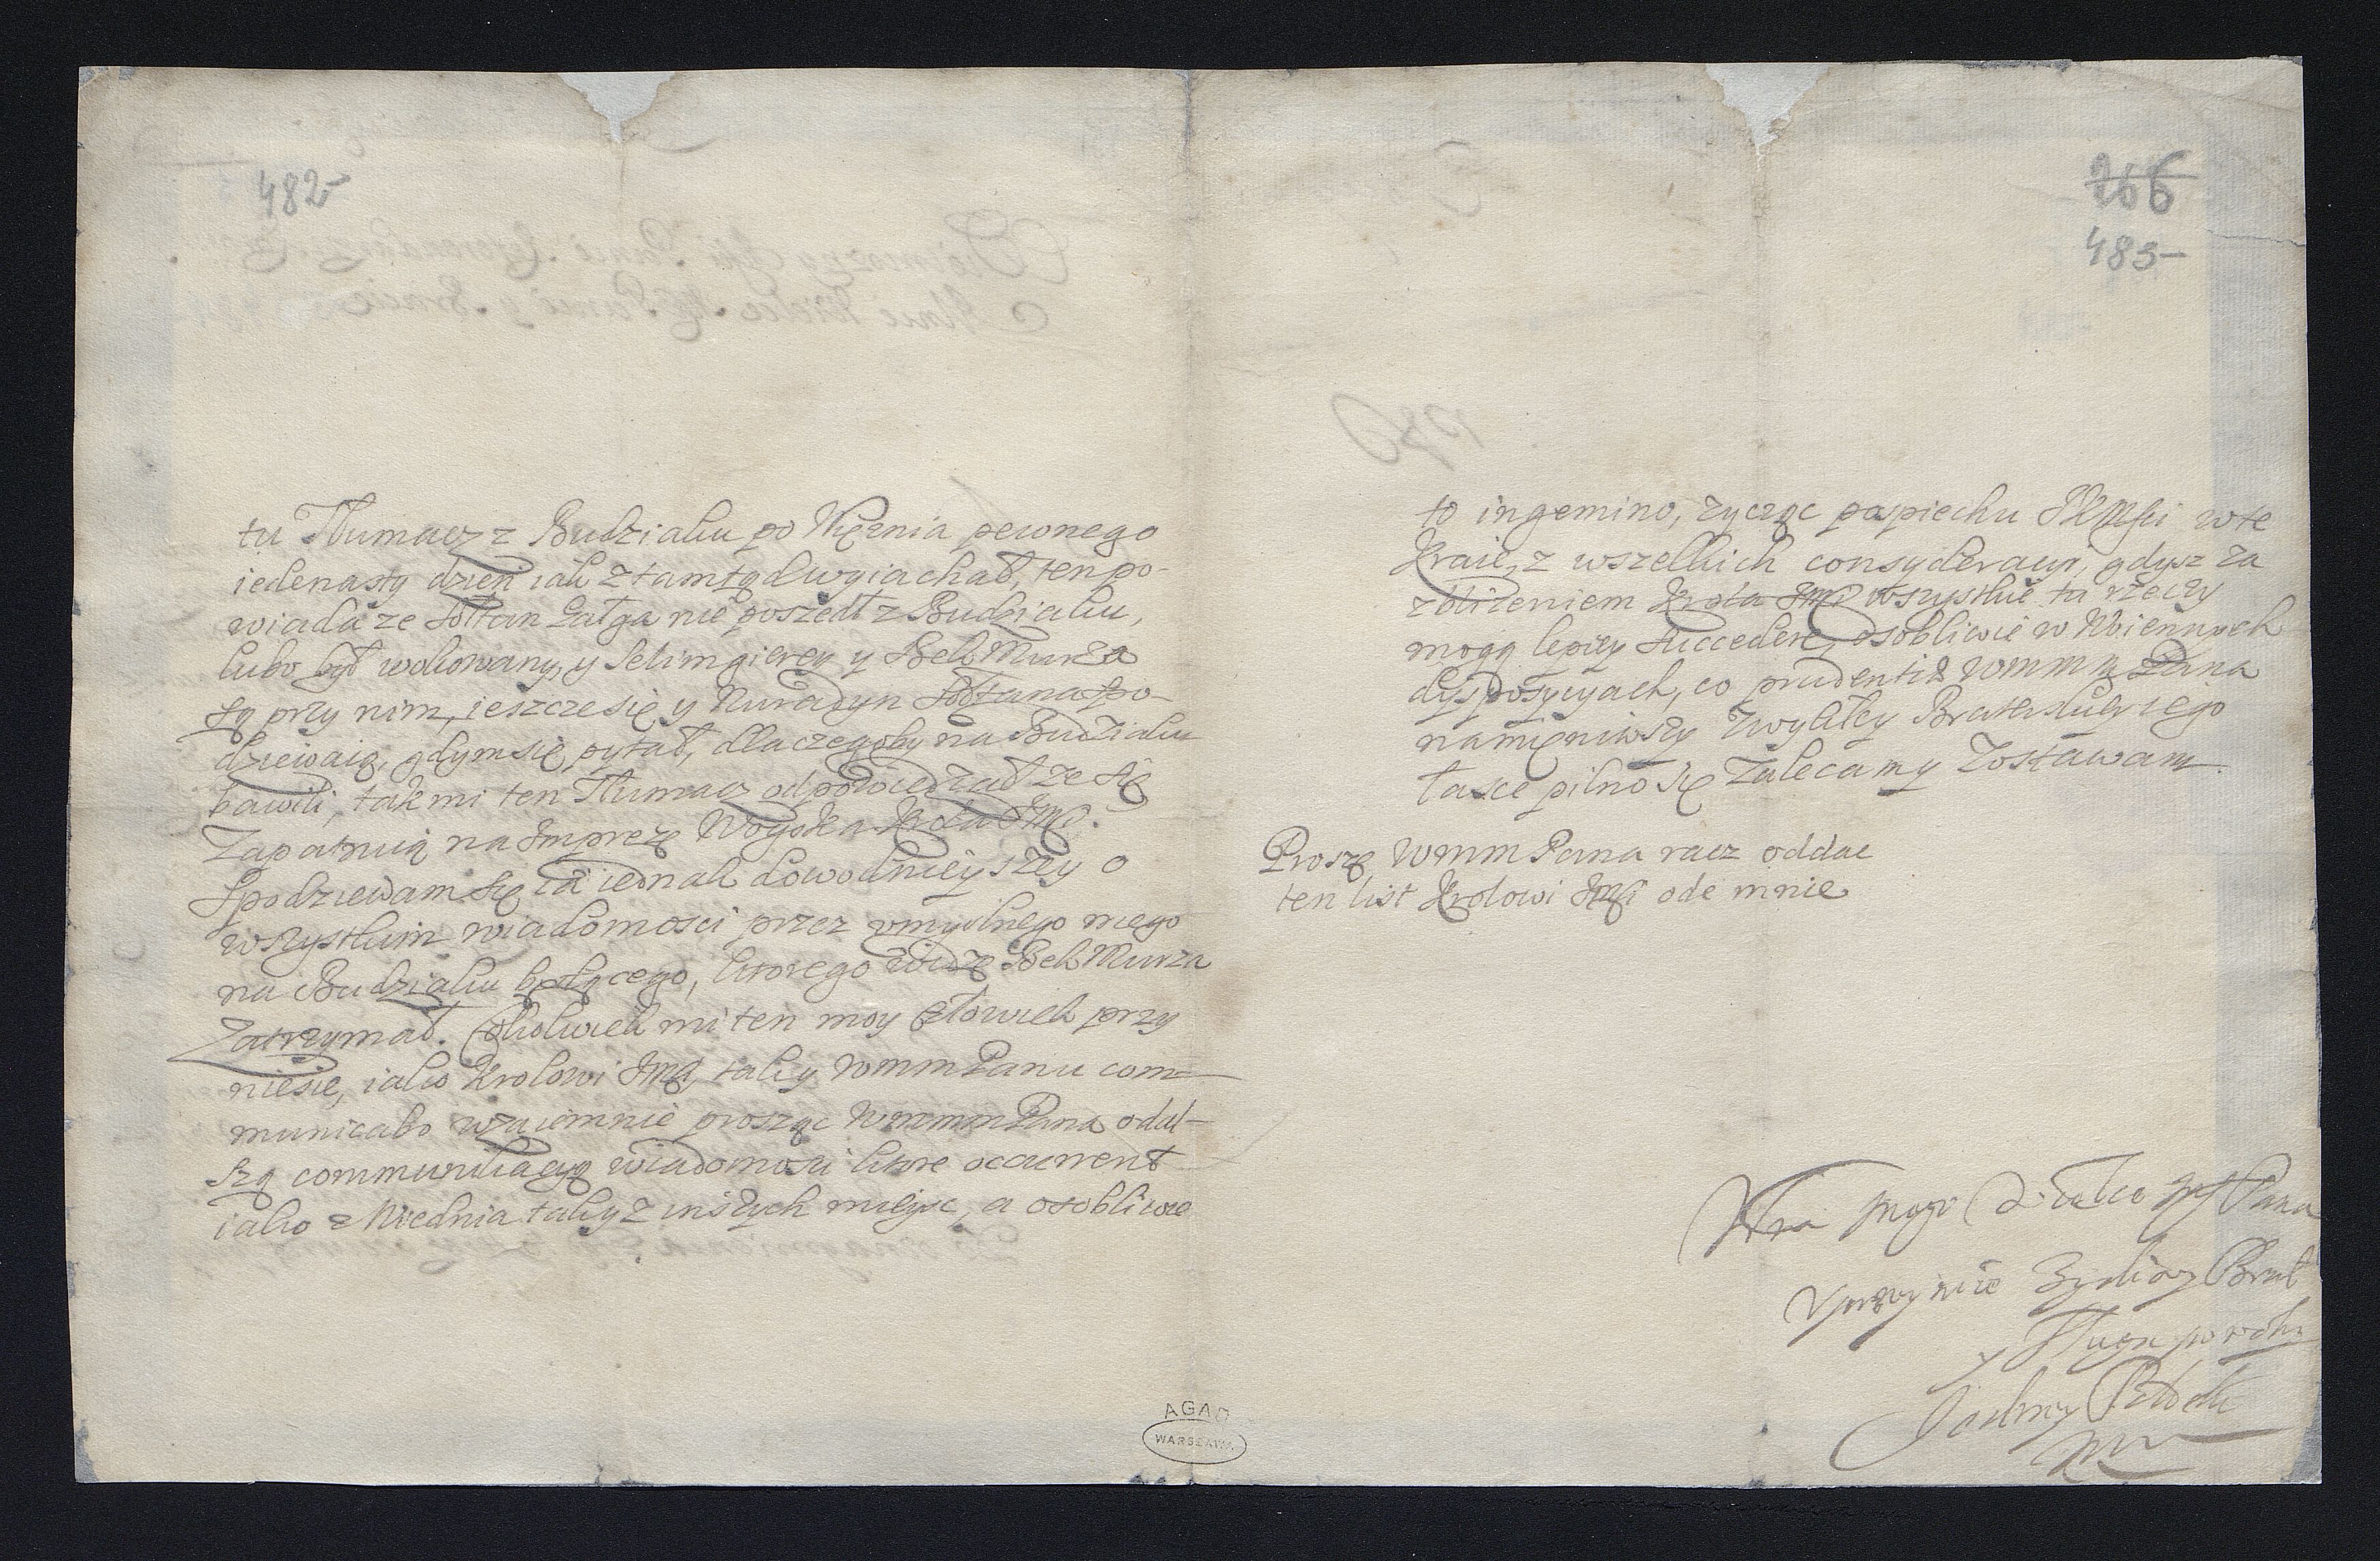 482
tu Tłumacz z Budziaku po Więznia pewnego
iedenasty dzien iak ztamtąd wyiachał, ten po-
wiada ze Sołtan Gałga nie poszedł z Budziaku,
lubo był wokowany, y Selimgierey y Bek Murza
są przy nim, ieszcze się y Nuradyn Sołtana spo-
dziewaią, gdym się pytał, dlaczegoby na Budziaku
bawili, tak mi ten Tłumacz odpowiedział ze się
Zapatruią na Impreze Woyska Krola Jmci.
Spodziewam się ia iednak dowodnieyszey o
wszystkim wiadomosci przez umyslnego mego
na Budziaku będącego, ktorego widzę Bek Murza
Zatrzymał. Cokolwiek mi ten moy człowiek przy
niesie, iako Krolowi Jmci, tak y WMM Panu com-
municabo wzaiemnie prosząc WMMM Pana o dal-
szą communicacyą wiadomosci ktore occurrent
iako z Wiednia tak y z inszych mieysc, a osobliwie
266
483
to ingemino, zycząc pospiechu JKMsci w te
Kraie, z wszelkich consyderacyi, gdysz za
zblizeniem Krola Jmci wszystkie tu rzeczy
mogą lepiey succedere, osobliwie w Woiennych
dyspozycyach, co prudentiæ WMM Pana
namieniwszy zwykłey Braterskiey iego
łasce pilno się Zalecamy Zostawam
Proszę WMM Pana racz oddac
ten list Krolowi Jmci ode mnie
Wm mego Pana
Uprzeymie zycliwy Brat
y sługa powolny
Jędrzey Potocki
AGAD
WARSZAWA